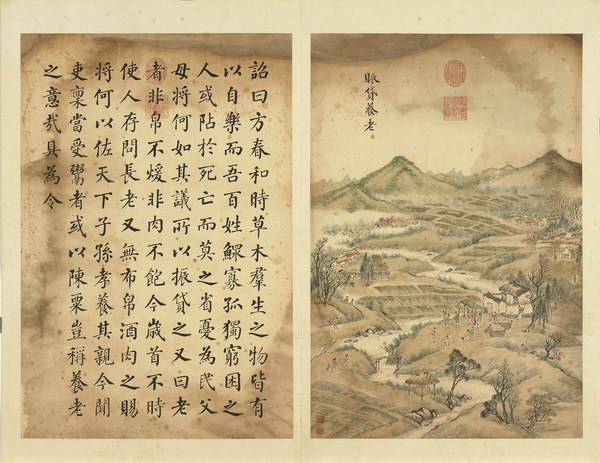 賑貸養老
詔曰方春和時草木羣生之物皆有
以自樂而吾百姓鰥寡孤獨窮困之
人或阽於死亡而莫之省憂為民父
母將何如其議所以振貸之又曰老
者非帛不煖非肉不飽今歲首不時
使人存問長老又無布帛酒肉之賜
將何以佐天下子孫孝養其親今聞
吏稟當受鬻者或以陳粟豈稱養老
之意哉具為令